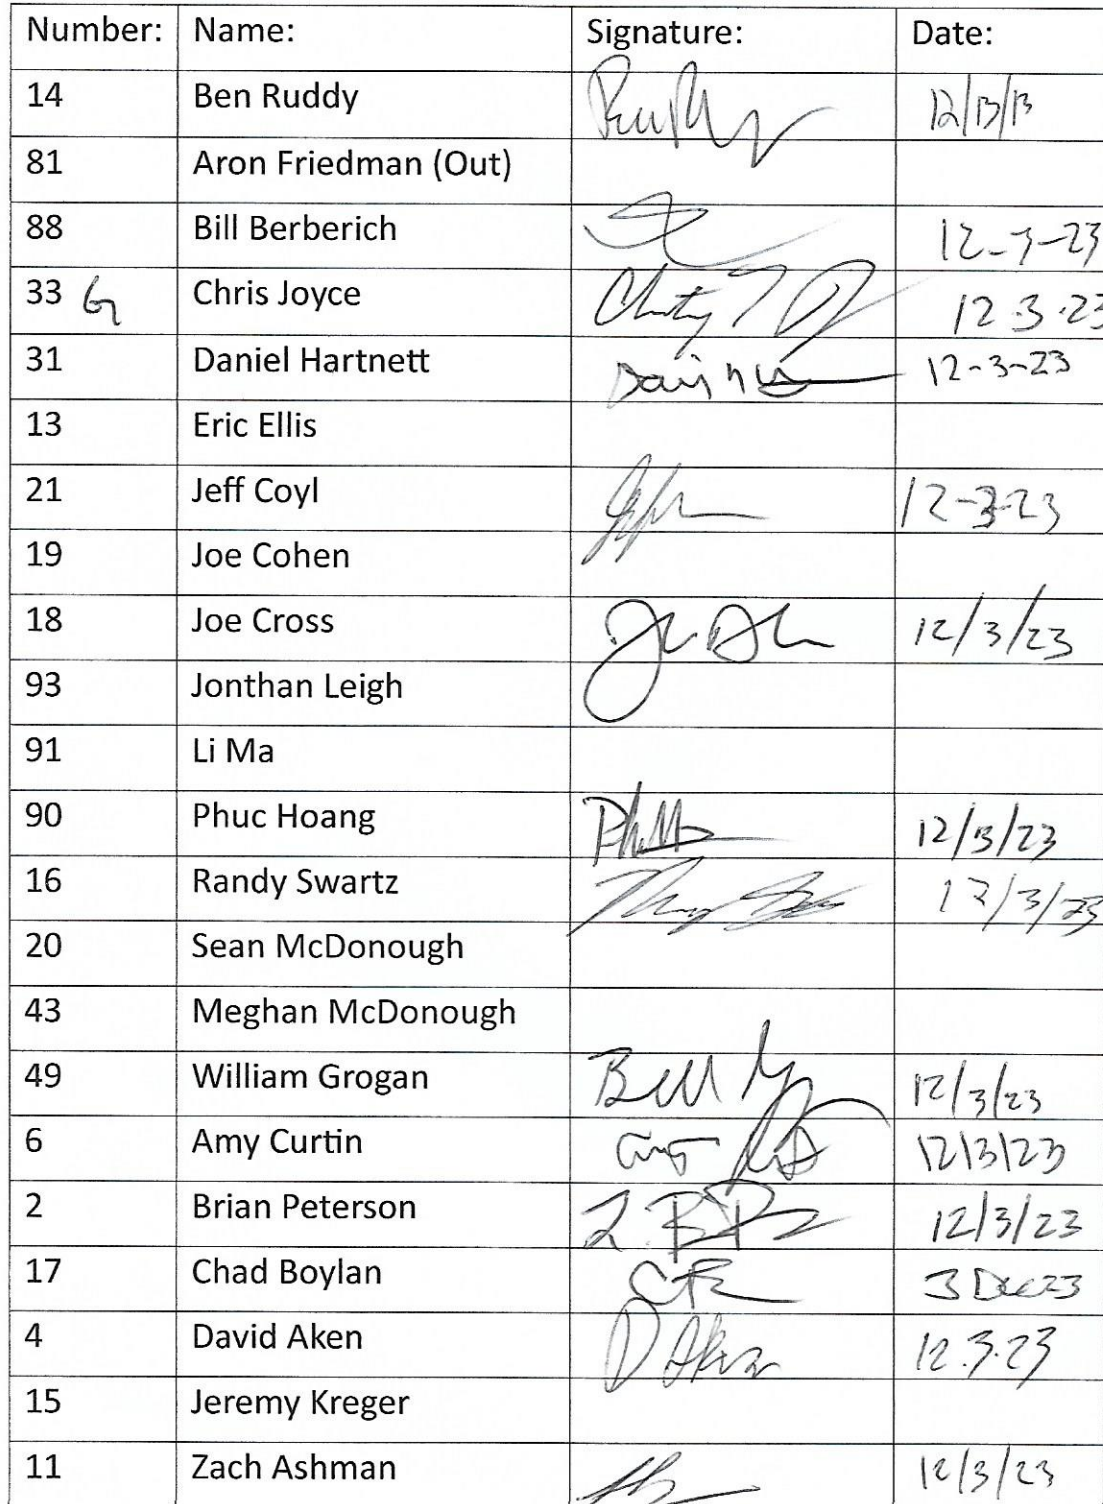 Number: Name: Signature: Date:
14 Ben Ruddy 12/13/13
81 Aron Friedman (Out)
88 Bill Berberich 12-3-23
33 G Chris Joyce 12.3.23
31 Daniel Hartnett 12-3-23
13 Eric Ellis
21 Jeff Coyl 12-3-23
19 Joe Cohen
18 Joe Cross 12/3/23
93 Jonthan Leigh
91 Li Ma
90 Phuc Hoang 12/3/23
16 Randy Swartz 12/3/23
20 Sean McDonough
43 Meghan McDonough
49 William Grogan Bill 12/3/23
6 Amy Curtin 12/3/23
2 Brian Peterson 12/3/23
17 Chad Boylan 3 Dec 23
4 David Aken D Aken 12.3.23
15 Jeremy Kreger
11 Zach Ashman 12/3/23